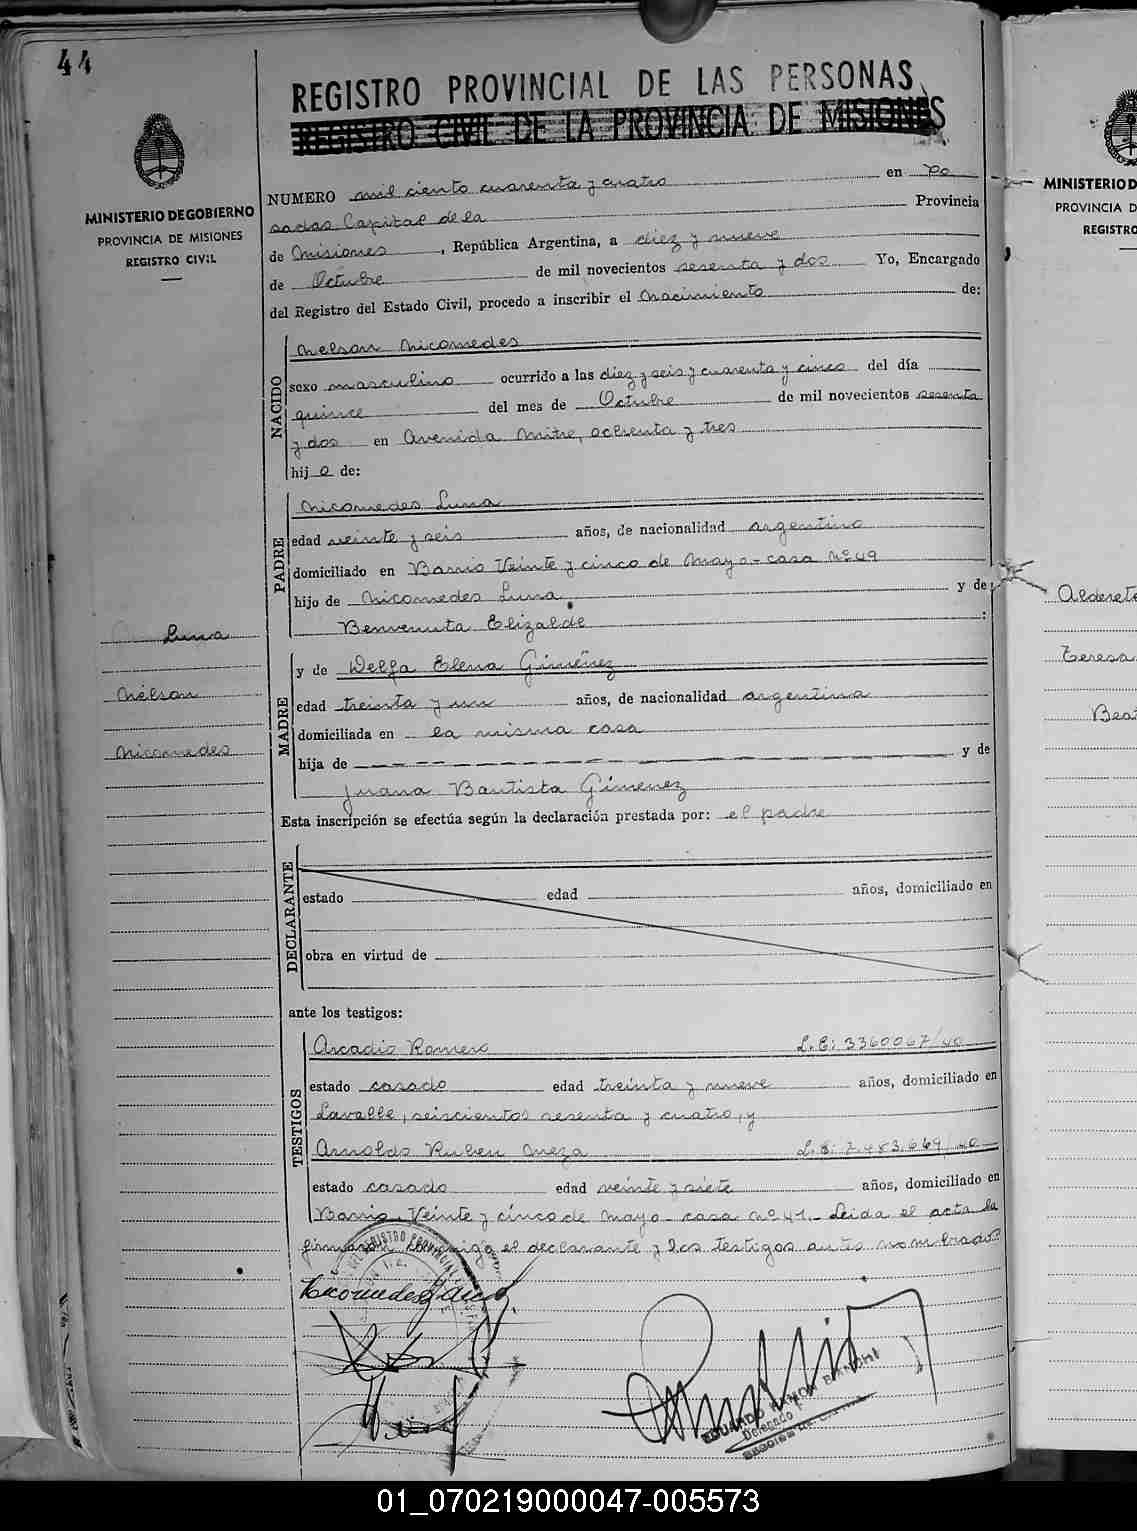 44
REGISTRO PROVINCIAL DE LAS PERSONAS
REGISTRO CIVIL DE LA PROVINCIA DE MISIONES
MINISTERIO DE GOBIERNO
PROVINCIA DE MISIONES
REGISTRO CIVIL
NUMERO mil ciento cuarenta y cuatro en Po
sadas Capital de la Provincia
de Misiones, República Argentina, a diez y nueve
de Octubre de mil novecientos sesenta y dos Yo, Encargado
del Registro del Estado Civil, procedo a inscribir el nacimiento de:
NACIDO
Nelson Nicomedes
sexo masculino ocurrido a las diez y seis y cuarenta y cinco del día
quince del mes de Octubre de mil novecientos sesenta
y dos en Avenida Mitre, ochenta y tres
hijo de:
PADRE
Nicomedes Luna
edad veinte y seis años, de nacionalidad argentino
domiciliado en Barrio Veinte y cinco de Mayo - casa nº 49
hijo de Nicomedes Luna y de
Benvenuta Elizalde :
Luna
Nelson
Nicomedes
MADRE
y de Delfa Elena Giménez
edad treinta y un años, de nacionalidad argentina
domiciliada en la misma casa
hija de y de
Juana Bautista Gimenez
Esta inscripción se efectúa según la declaración prestada por: el padre
DECLARANTE
estado edad años, domiciliado en
obra en virtud de
ante los testigos:
TESTIGOS
Arcadio Romero L.E: 3360067/40
estado casado edad treinta y nueve años, domiciliado en
Lavalle, seiscientos sesenta y cuatro, y
Arnoldo Ruben Meza L.E: 7.483.669/40
estado casado edad veinte y siete años, domiciliado en
Barrio Veinte y cinco de Mayo - casa nº 41.- Leida el acta la
firmaron conmigo el declarante y los testigos antes nombrados
Nicomedes Luna
EDUARDO RAMON BIANCHI
Delegado
MINISTERIO D
PROVINCIA D
REGISTRO
Alderete
Teresa
Beat
01_070219000047-005573